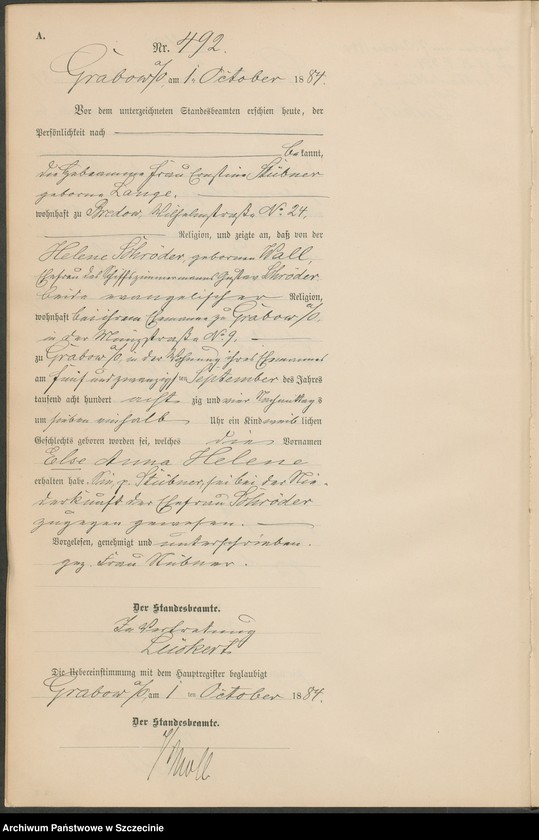 A.
Nr. 492.
Grabow a/O. am 1. October 1884.
Vor dem unterzeichneten Standesbeamten erschien heute, der
Persönlichkeit nach
bekannt,
die Hebeamme Frau Ernstine Stübner
geborne Lange,
wohnhaft zu Bredow, Wilhelmstraße No. 24,
Religion, und zeigte an, daß von der
Helene Schröder, gebornen Wall,
Ehefrau des Schiffszimmermanns Gustav Schröder
beide evangelischer Religion,
wohnhaft bei ihrem Ehemanne zu Grabow a/O,
in der Münzstraße No. 9,
zu Grabow a/O, in der Wohnung ihres Ehemannes
am fünf und zwanzigsten September des Jahres
tausend acht hundert achtzig und vier Nachmittags
um sieben einhalb Uhr ein Kind weiblichen
Geschlechts geboren worden sei, welches die Vornamen
Else Anna Helene
erhalten habe. Sie, p. Stübner, sei bei der Nie-
derkunft der Ehefrau Schröder
zugegen gewesen.
Vorgelesen, genehmigt und unterschrieben.
gez. Frau Stübner.
Der Standesbeamte.
In Vertretung
Lückert
Die Uebereinstimmung mit dem Hauptregister beglaubigt
Grabow a/O, am 1 ten October 1884.
Der Standesbeamte.
Archiwum Państwowe w Szczecinie